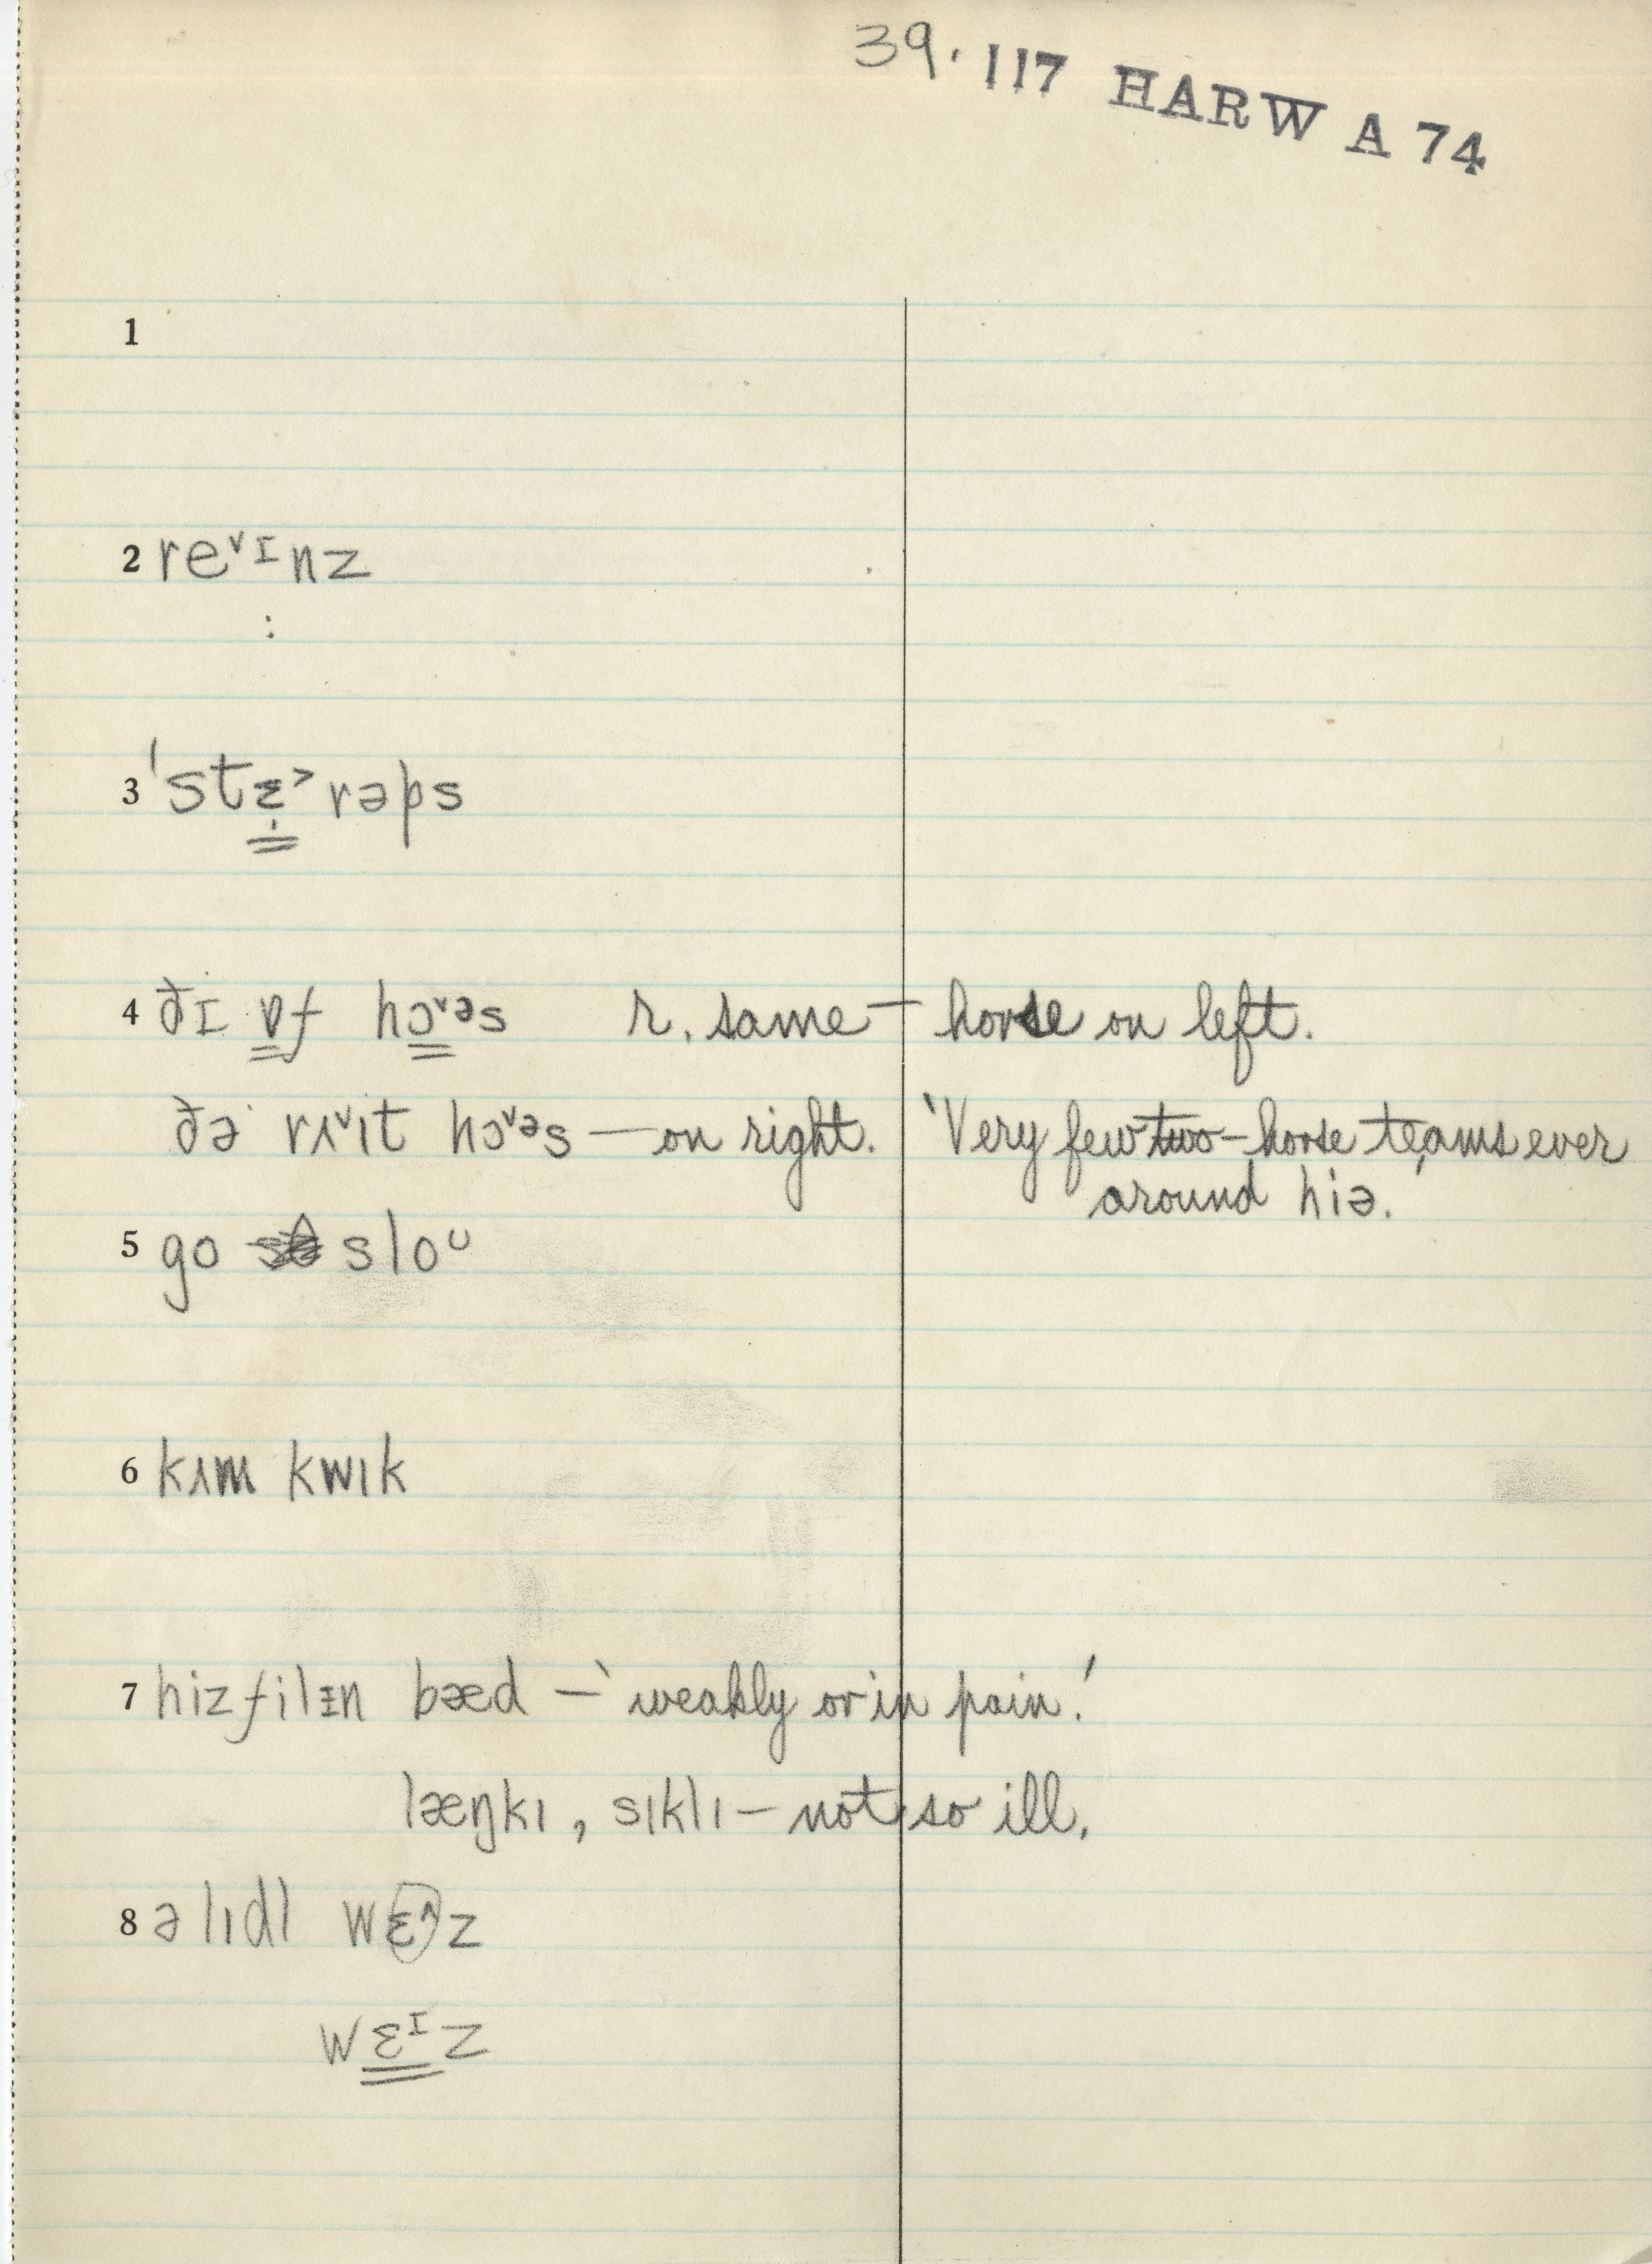 39. 117 HARW A 74
1
2 reˇᶦnz
:
3 ˈstɛ˃rəps
4 ðɪ ɒf hɔˇᵊs r. same — horse on left.
ðə rʌˇɪt hɔˇᵊs — on right. 'Very few two-horse teams ever
around hiə.'
5 go sloᶸ
6 kʌm kwɪk
7 hizfilɪn bæd — 'weakly or in pain.'
læŋkɪ, sɪklɪ — not so ill.
8 ə lɪdl wɛ^z
wɛᶦz